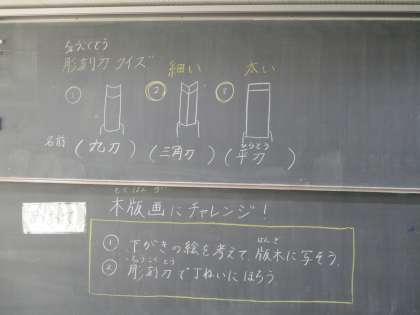 ちょうこくとう
彫刻刀クイズ
細い 太い
① ② ③
名前 (丸刀) (三角刀) (平刀)
ひらとう
もくはんが
木版画にチャレンジ!
めあて
① 下がきの絵を考えて、版木に写そう。
はんぎ
② 彫刻刀で丁ねいにほろう
ちょうこくとう